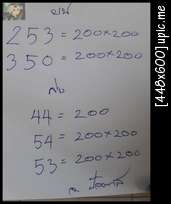 บน
253 = 200×200
350 = 200×200
ล่าง
44 = 200
54 = 200×200
53 = 200×200
[448x600] upic.me